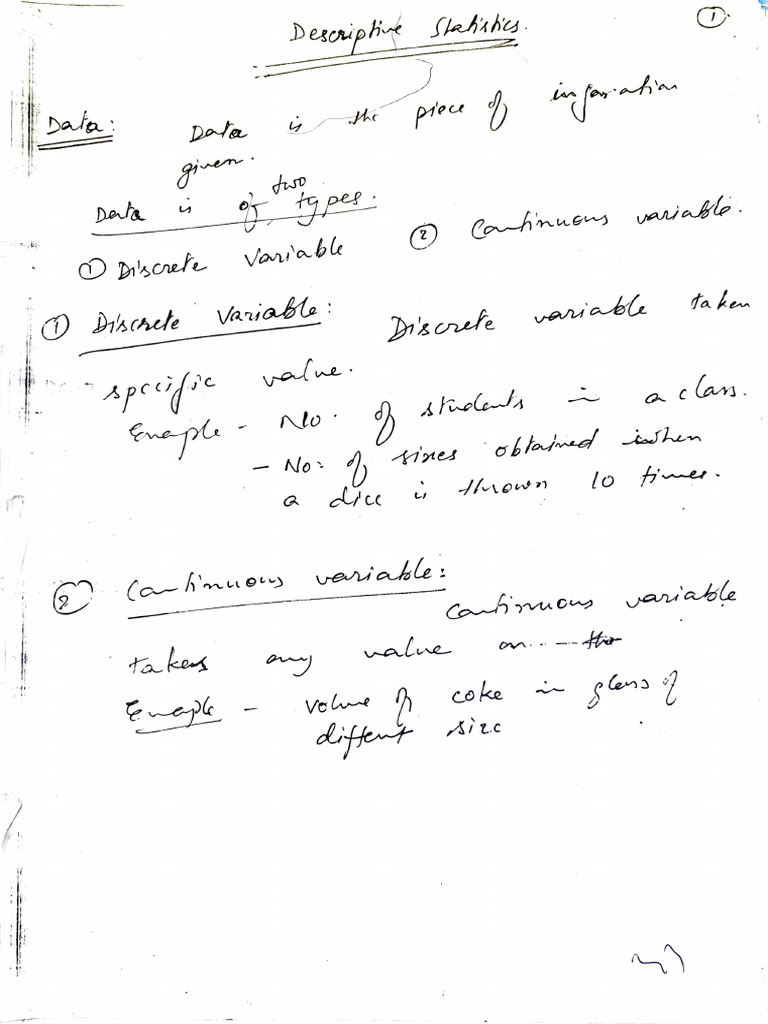 Descriptive Statistics.
1
Data: Data is the piece of information
given.
Data is of two types.
① Discrete Variable ② Continuous variable.
① Discrete Variable: Discrete variable taken
specific value.
Example - No. of students in a class.
- No: of sixes obtained when
a dice is thrown 10 times.
② Continuous variable:
Continuous variable
takes any value on
Example - volume of coke in glass of
diffent size